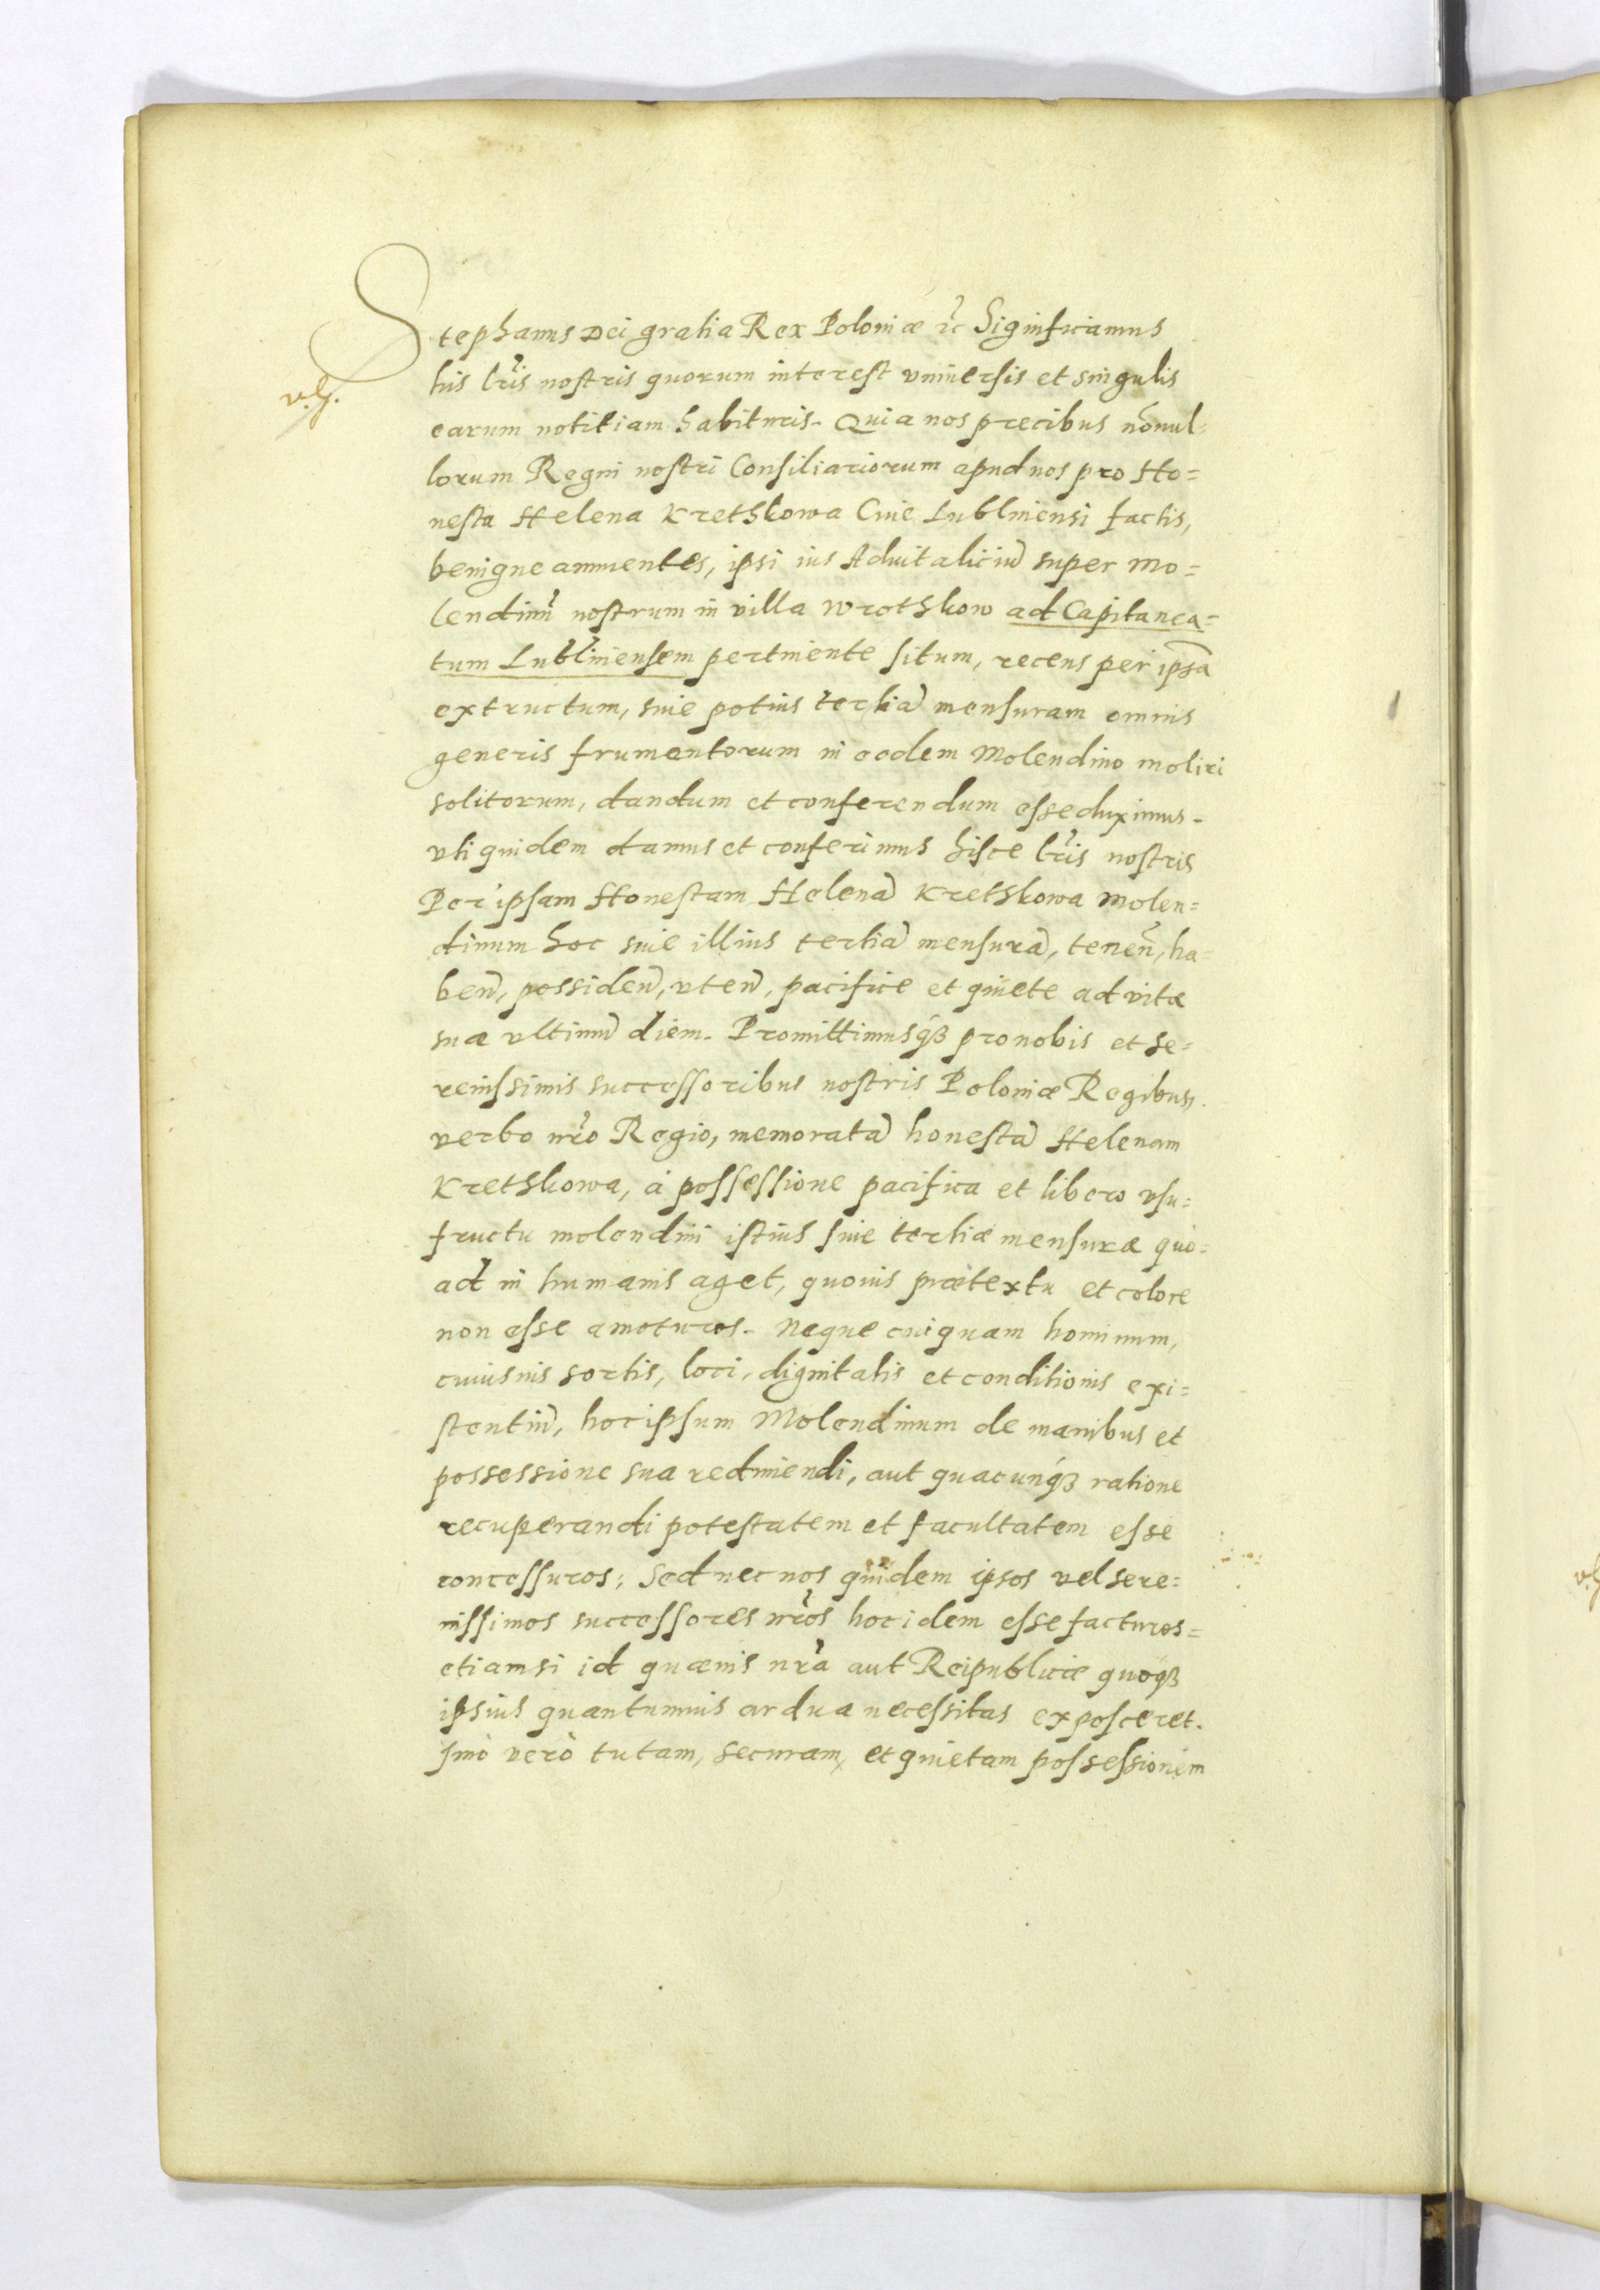 Stephanus Dei gratia Rex Poloniæ rc̃ Significamus
his lr̃is nostris quorum interest vniuersis et singulis
v.g.
earum notitiam habituris. Quia nos precibus nõnul
lorum Regni nostri Consiliariorum apud nos pro Ho=
nesta Helena Krethkowa Ciue Lubliniensi factis,
benigne annuentes, ipsi ius Aduitaliciũ super Mo=
lendinũ nostrum in villa Wrothkow ad Capitanea=
tum Lubliniensem pertinente situm, recens per ipsã
extructum, siue potius tertiã mensuram omnis
generis frumentorum in eodem Molendino moliri
solitorum, dandum et conferendum esse duximus.
vti quidem damus et conferimus hisce lr̃is nostris
Per ipsam Honestam Helenã Krethkowa Molen=
dinum hoc siue illius tertiã mensurã, teneñ, ha=
beñ, possideñ, vteñ, pacifice et quiete ad vitæ
suæ vltimũ diem. Promittimusq́ꝫ pro nobis et Se=
renissimis successoribus nostris Poloniæ Regibus,
verbo nr̃o Regio, memoratã honestã Helenam
Krethkowa, à possessione pacifica et libero vsu=
fructu molendini istius siue tertiæ mensuræ quo=
ad in humanis aget, quouis prætextu et colore
non esse amoturos. Neque cuiquam hominum,
cuiusuis sortis, loci, dignitatis et conditionis exi=
stentiũ, hoc ipsum Molendinum de manibus et
possessione sua redimendi, aut quacunq́ꝫ ratione
recuperandi potestatem et facultatem esse
concessuros; Sed nec nos quidem ipsos vel sere=
nissimos successores nr̃os hoc idem esse facturos=
etiamsi id quæuis nr̃a aut Reipublicæ quoq́ꝫ
ipsius quantumuis ardua necessitas exposceret.
Imò verò tutam, securam, et quietam possessionem